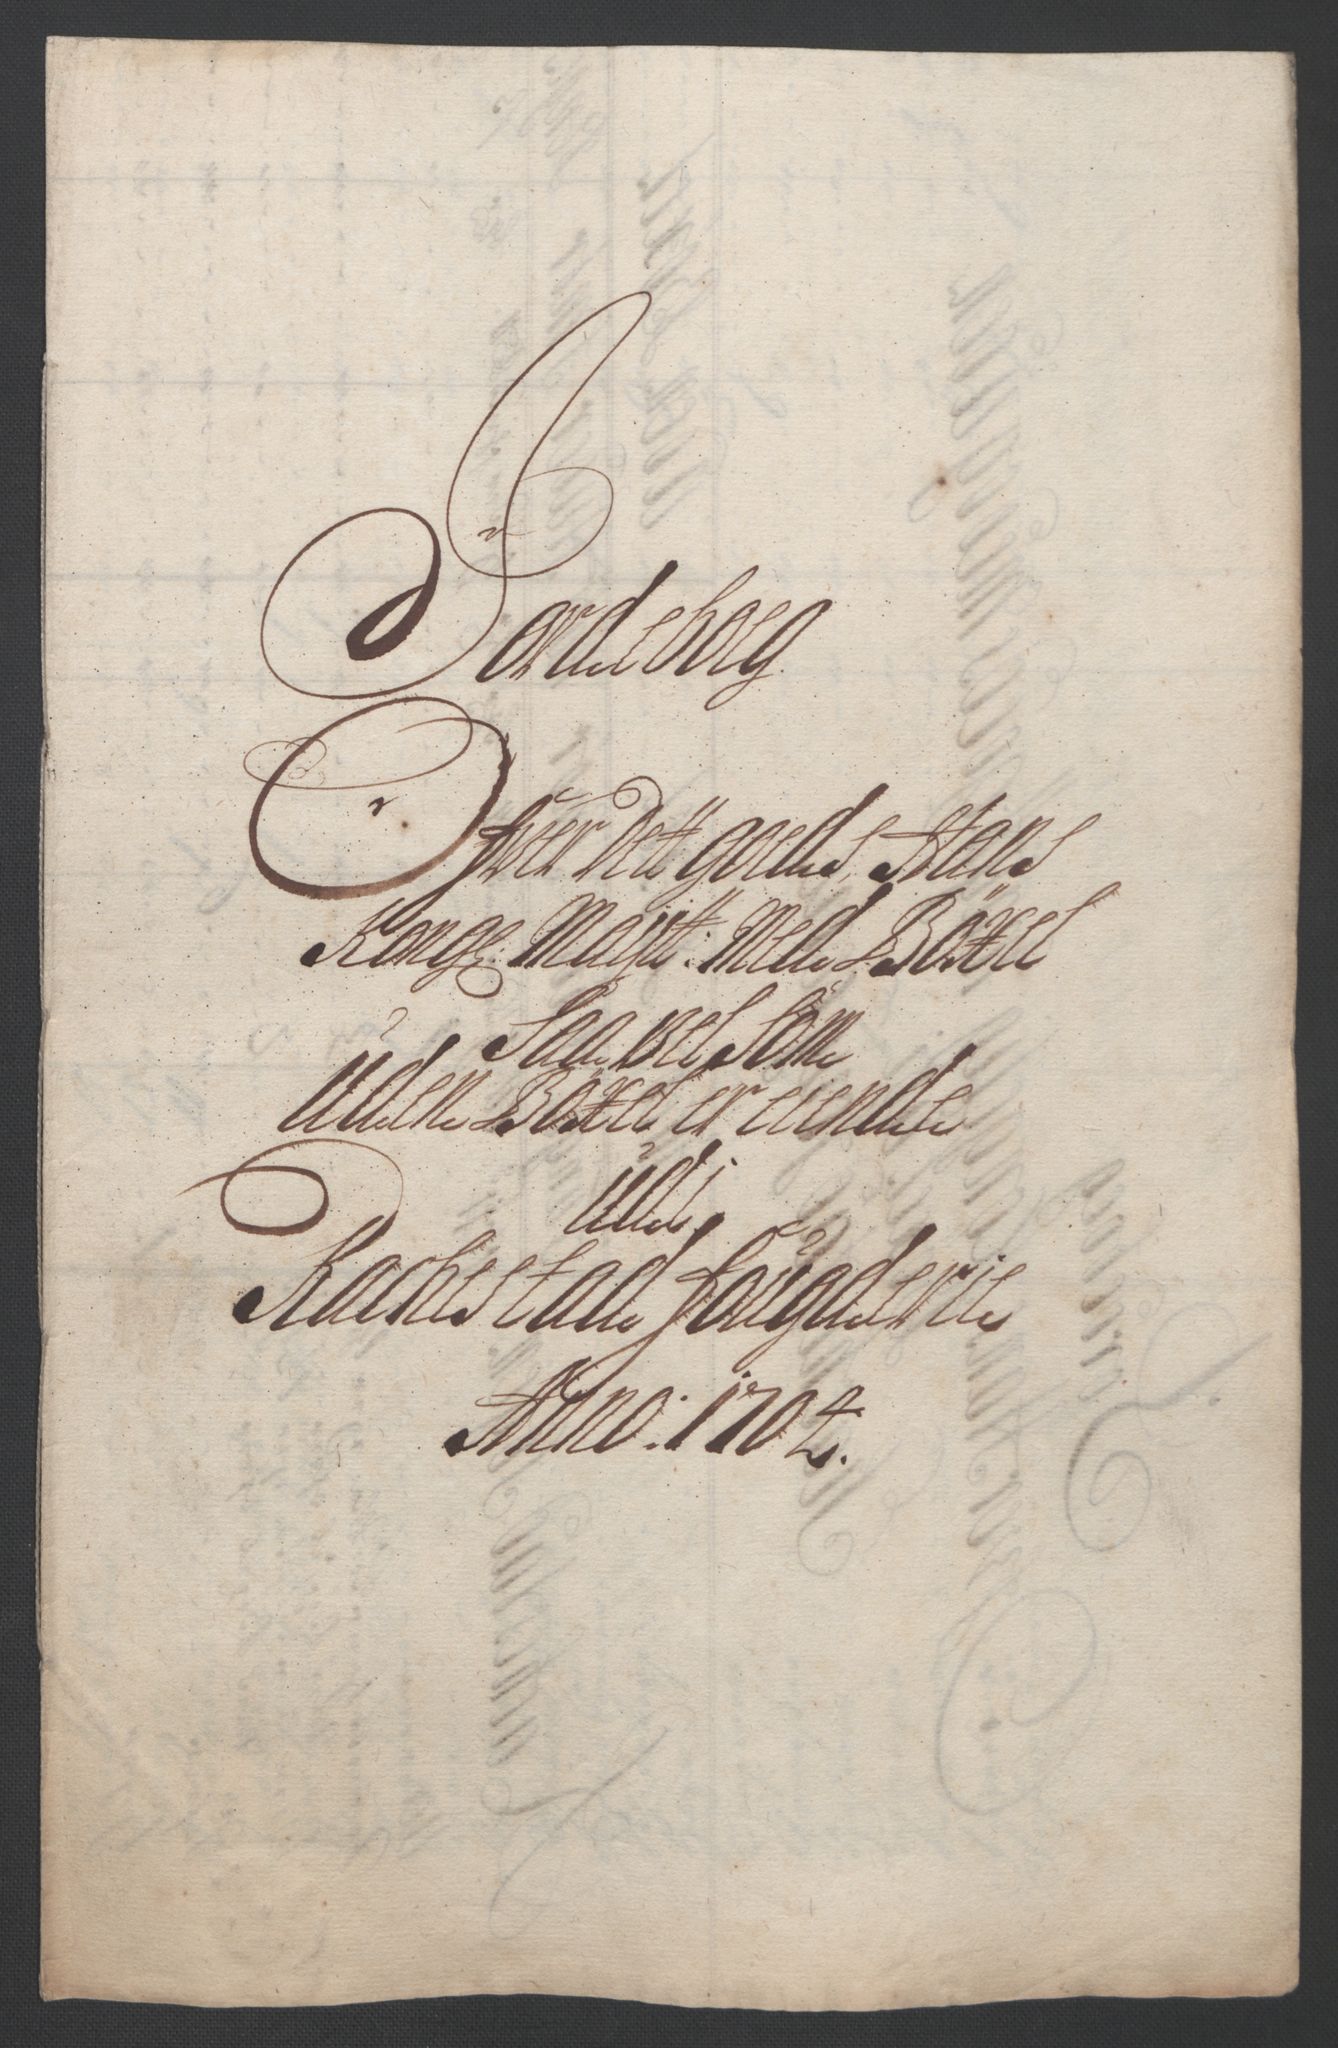 Jordeboeg
Ofwer Dett goeds, Hans
Kongε: Mayᵗᵗ: Med Böxel
Saa vel Som
Uden Böxel er eiende
Udi
Rachestad fougderie
Anno: 1704.